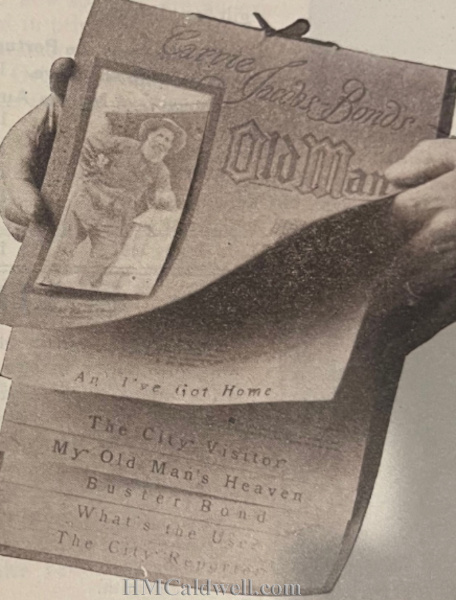 Carrie
Jacobs-Bonds
Old Man
An' I've Got Home
The City Visitor
My Old Man's Heaven
Buster Bond
What's the Use
The City Reporter
HMCaldwell.com